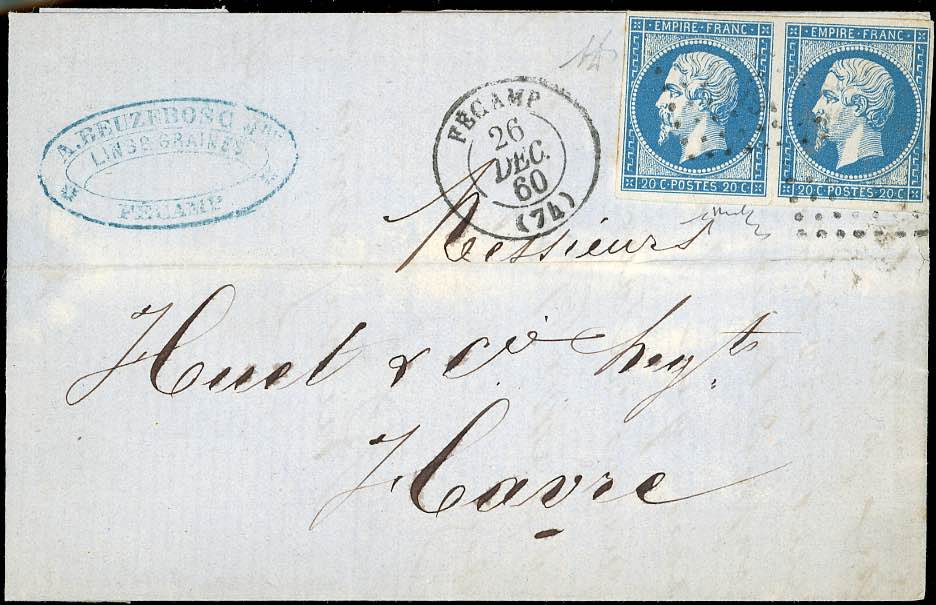 A. BEUZEBOSC Jne
LINS & GRAINES
FÉCAMP
FÉCAMP
26
DEC.
60
(74)
EMPIRE · FRANC
20 C · POSTES · 20 C
EMPIRE · FRANC
20 C · POSTES · 20 C
Messieurs
Huet & Cie
Havre